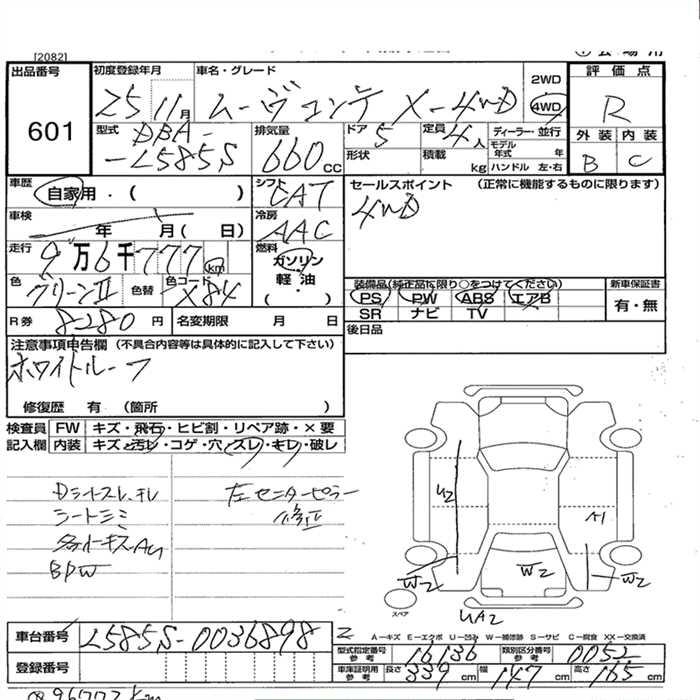 [2082]
出品番号 601
初度登録年月 25 11月
車名・グレード ムーヴコンテ X-4WD
2WD
4WD
評価点 R
外装 内装
B C
型式 DBA-
-L585S
排気量 660 cc
ドア 5
形状
定員 4人
積載 kg
ディーラー・並行
モデル年式 年
ハンドル 左・右
車歴 自家用・( )
シフト CAT
セールスポイント (正常に機能するものに限ります)
4WD
車検 年 月( 日)
冷房 AAC
走行 9万6千777 km
燃料 ガソリン
軽油
・( )
色 グリーンII
色替
色コード X84
装備品(純正品に限り○をつけてください)
PS PW ABS エアB
SR ナビ TV
新車保証書
有・無
R券 8280円
名変期限 月 日
後日品
注意事項申告欄 (不具合内容等は具体的に記入して下さい)
ホワイトルーフ
修復歴 有 (箇所 )
検査員 FW キズ・飛石・ヒビ割・リペア跡・×要
記入欄 内装 キズ・汚レ・コゲ・穴・スレ・キレ・破レ
Dシートスレ、キレ
シートシミ
BPW
左センターピラー
修正
U2
A1
W2
W2
W2
UA2
スペア
A-キズ E-エクボ U-凹み W-補修跡 S-サビ C-腐食 XX-交換済
車台番号 L585S-0036898
型式指定番号 参考 16136
類別区分番号 参考 0052
登録番号
車庫証明用 参考 長さ 339cm 幅 147cm 高さ 165cm
96777km